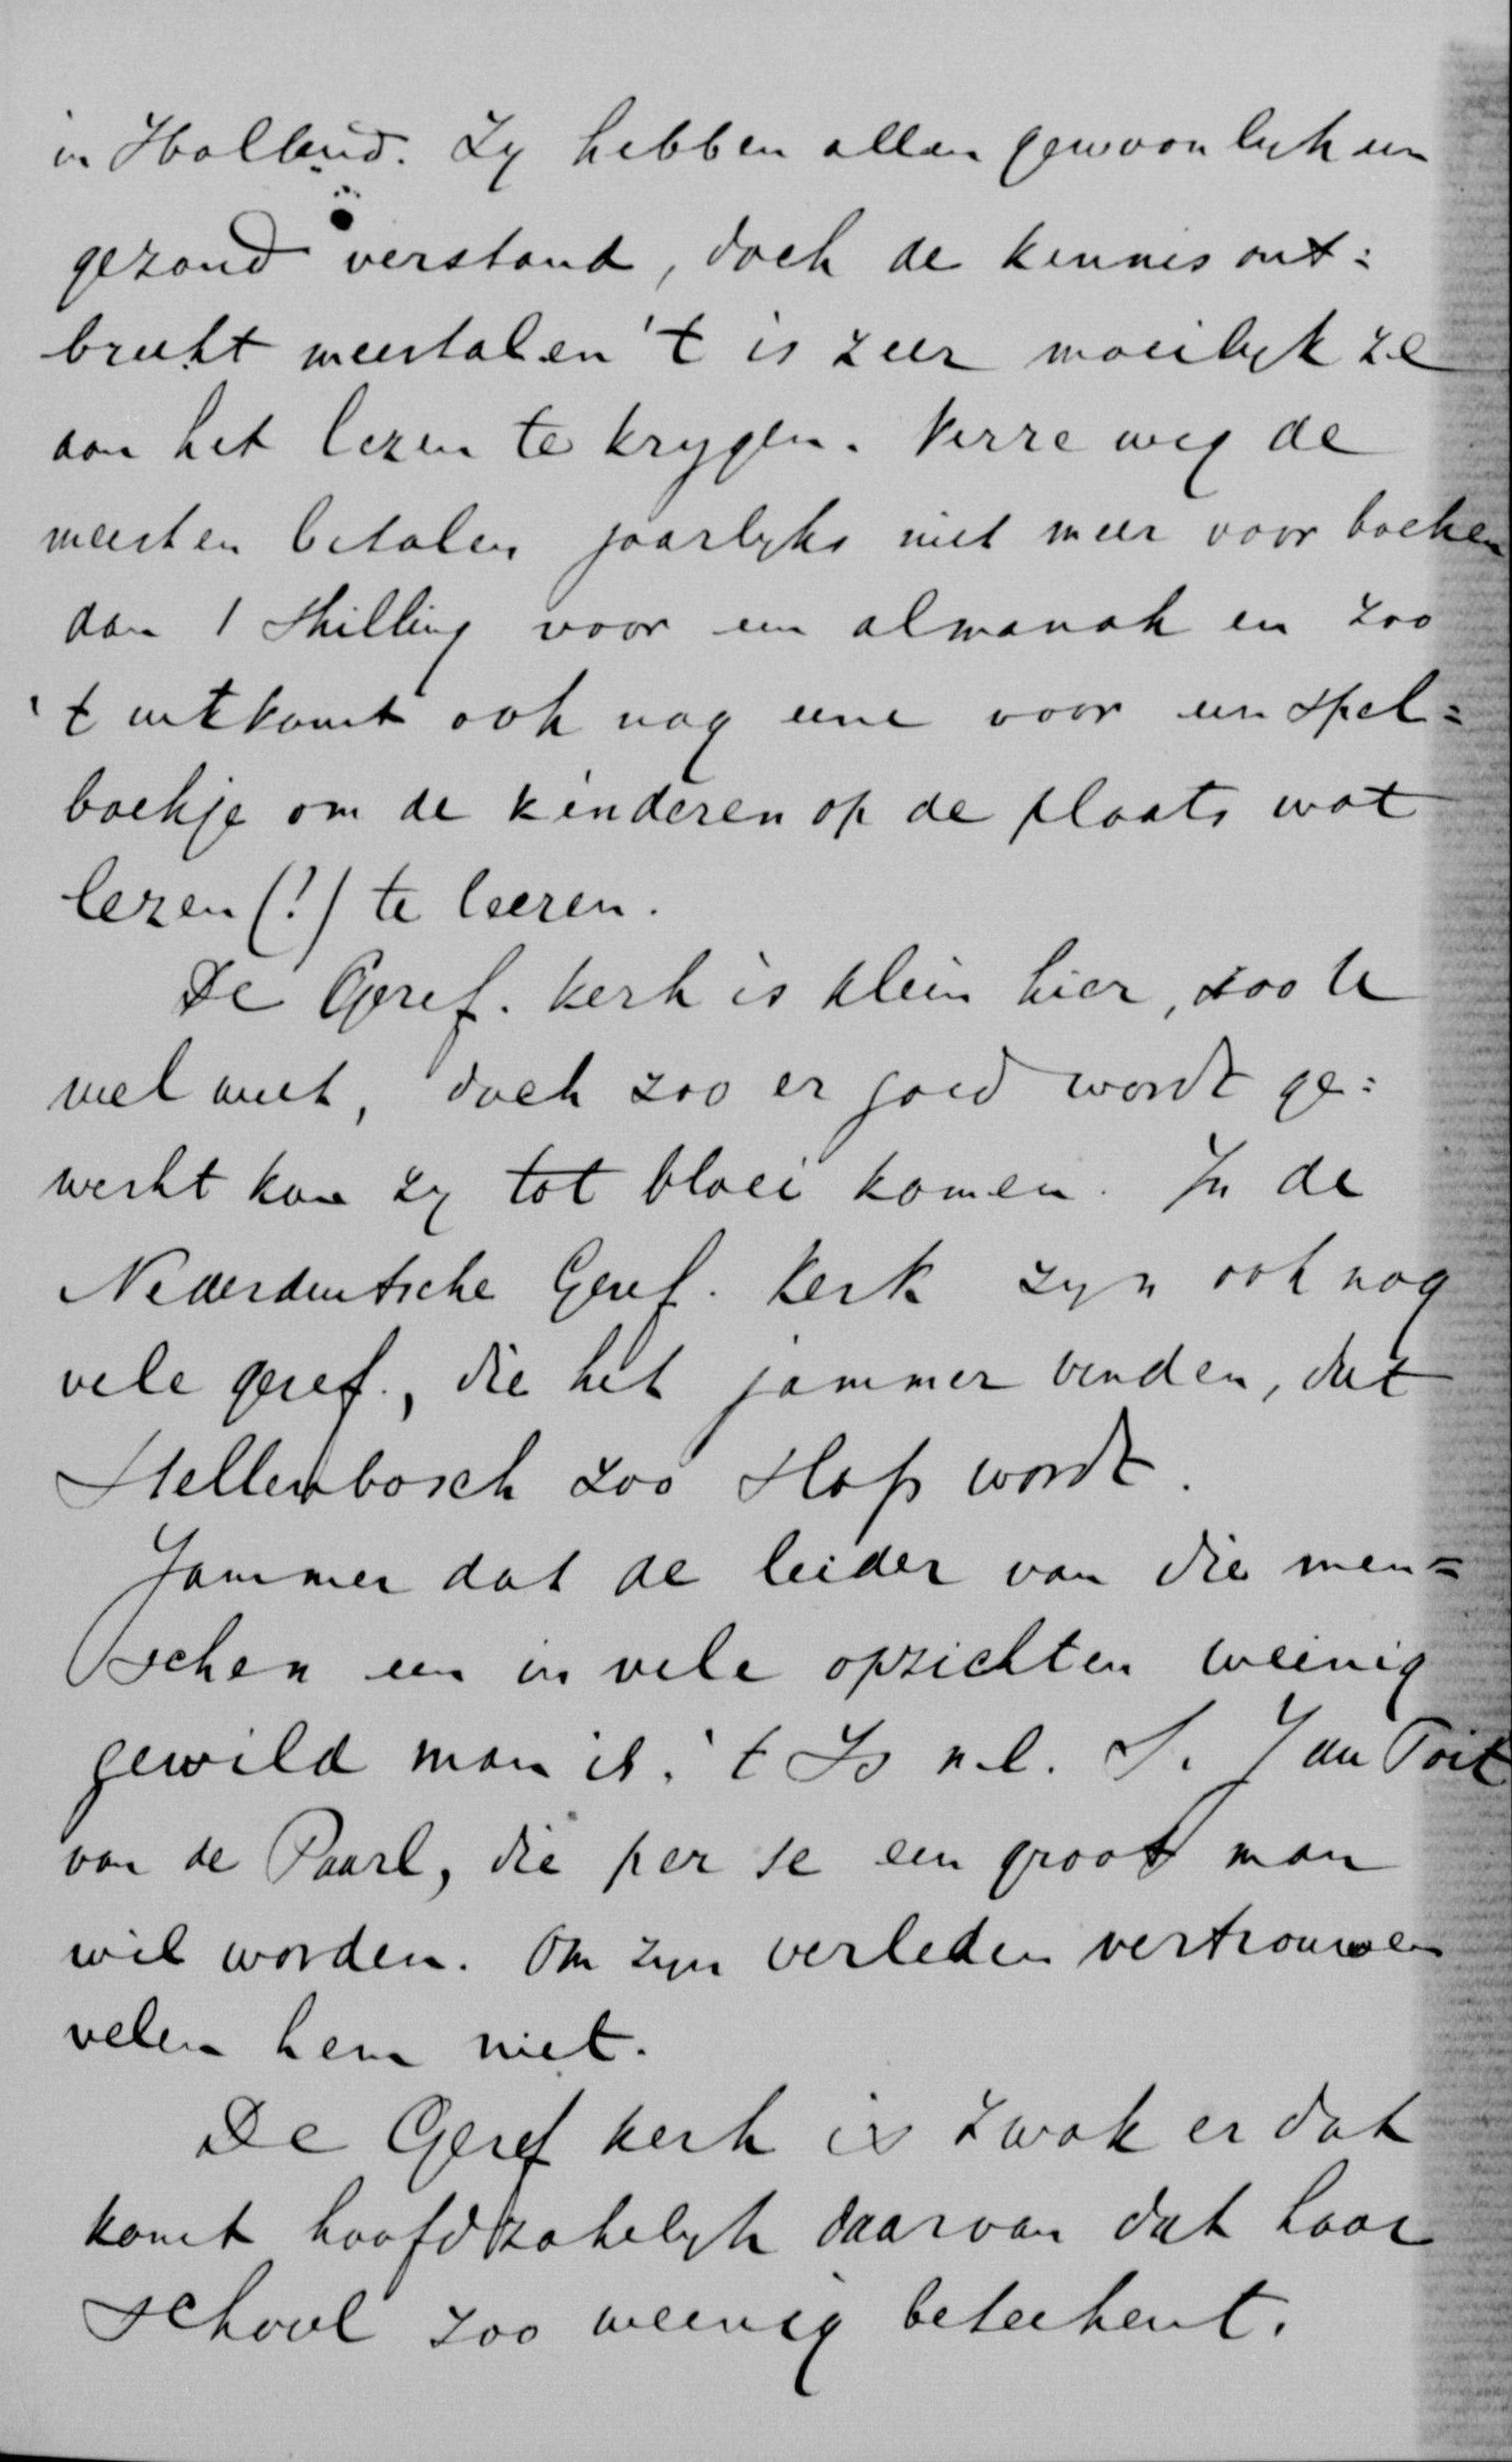 in Holland. Zy hebben allen gewoonlyk een
gezond verstand, doch de kennis ont=
breekt meestal en 't is zeer moeilyk ze
aan het lezen te krygen. Verre weg de
meesten betalen jaarlyks niet meer voor boeken
dan 1 Shilling voor een almanak en zoo
't uitkomt ook nog eene voor een spel=
boekje om de kinderen op de plaats wat
lezen (!) te leeren.
De Geref. kerk is klein hier, zoo U
wel weet, doch zoo er goed wordt ge=
werkt kan zy tot bloei komen. In de
Nederduitsche Geref. Kerk zyn ook nog
vele geref., die het jammer vinden, dat
Stellenbosch zoo slap wordt.
Jammer dat de leider van die men=
schen een in vele opzichten weinig
gewild man is. 't Is n.l. S. J du Toit
van de Paarl, die per se een groot man
wil worden. Om zyn verleden vertrouwen
velen hem niet.
De Geref kerk is zwak en dat
komt hoofdzakelyk daarvan dat haar
school zoo weinig beteekent.